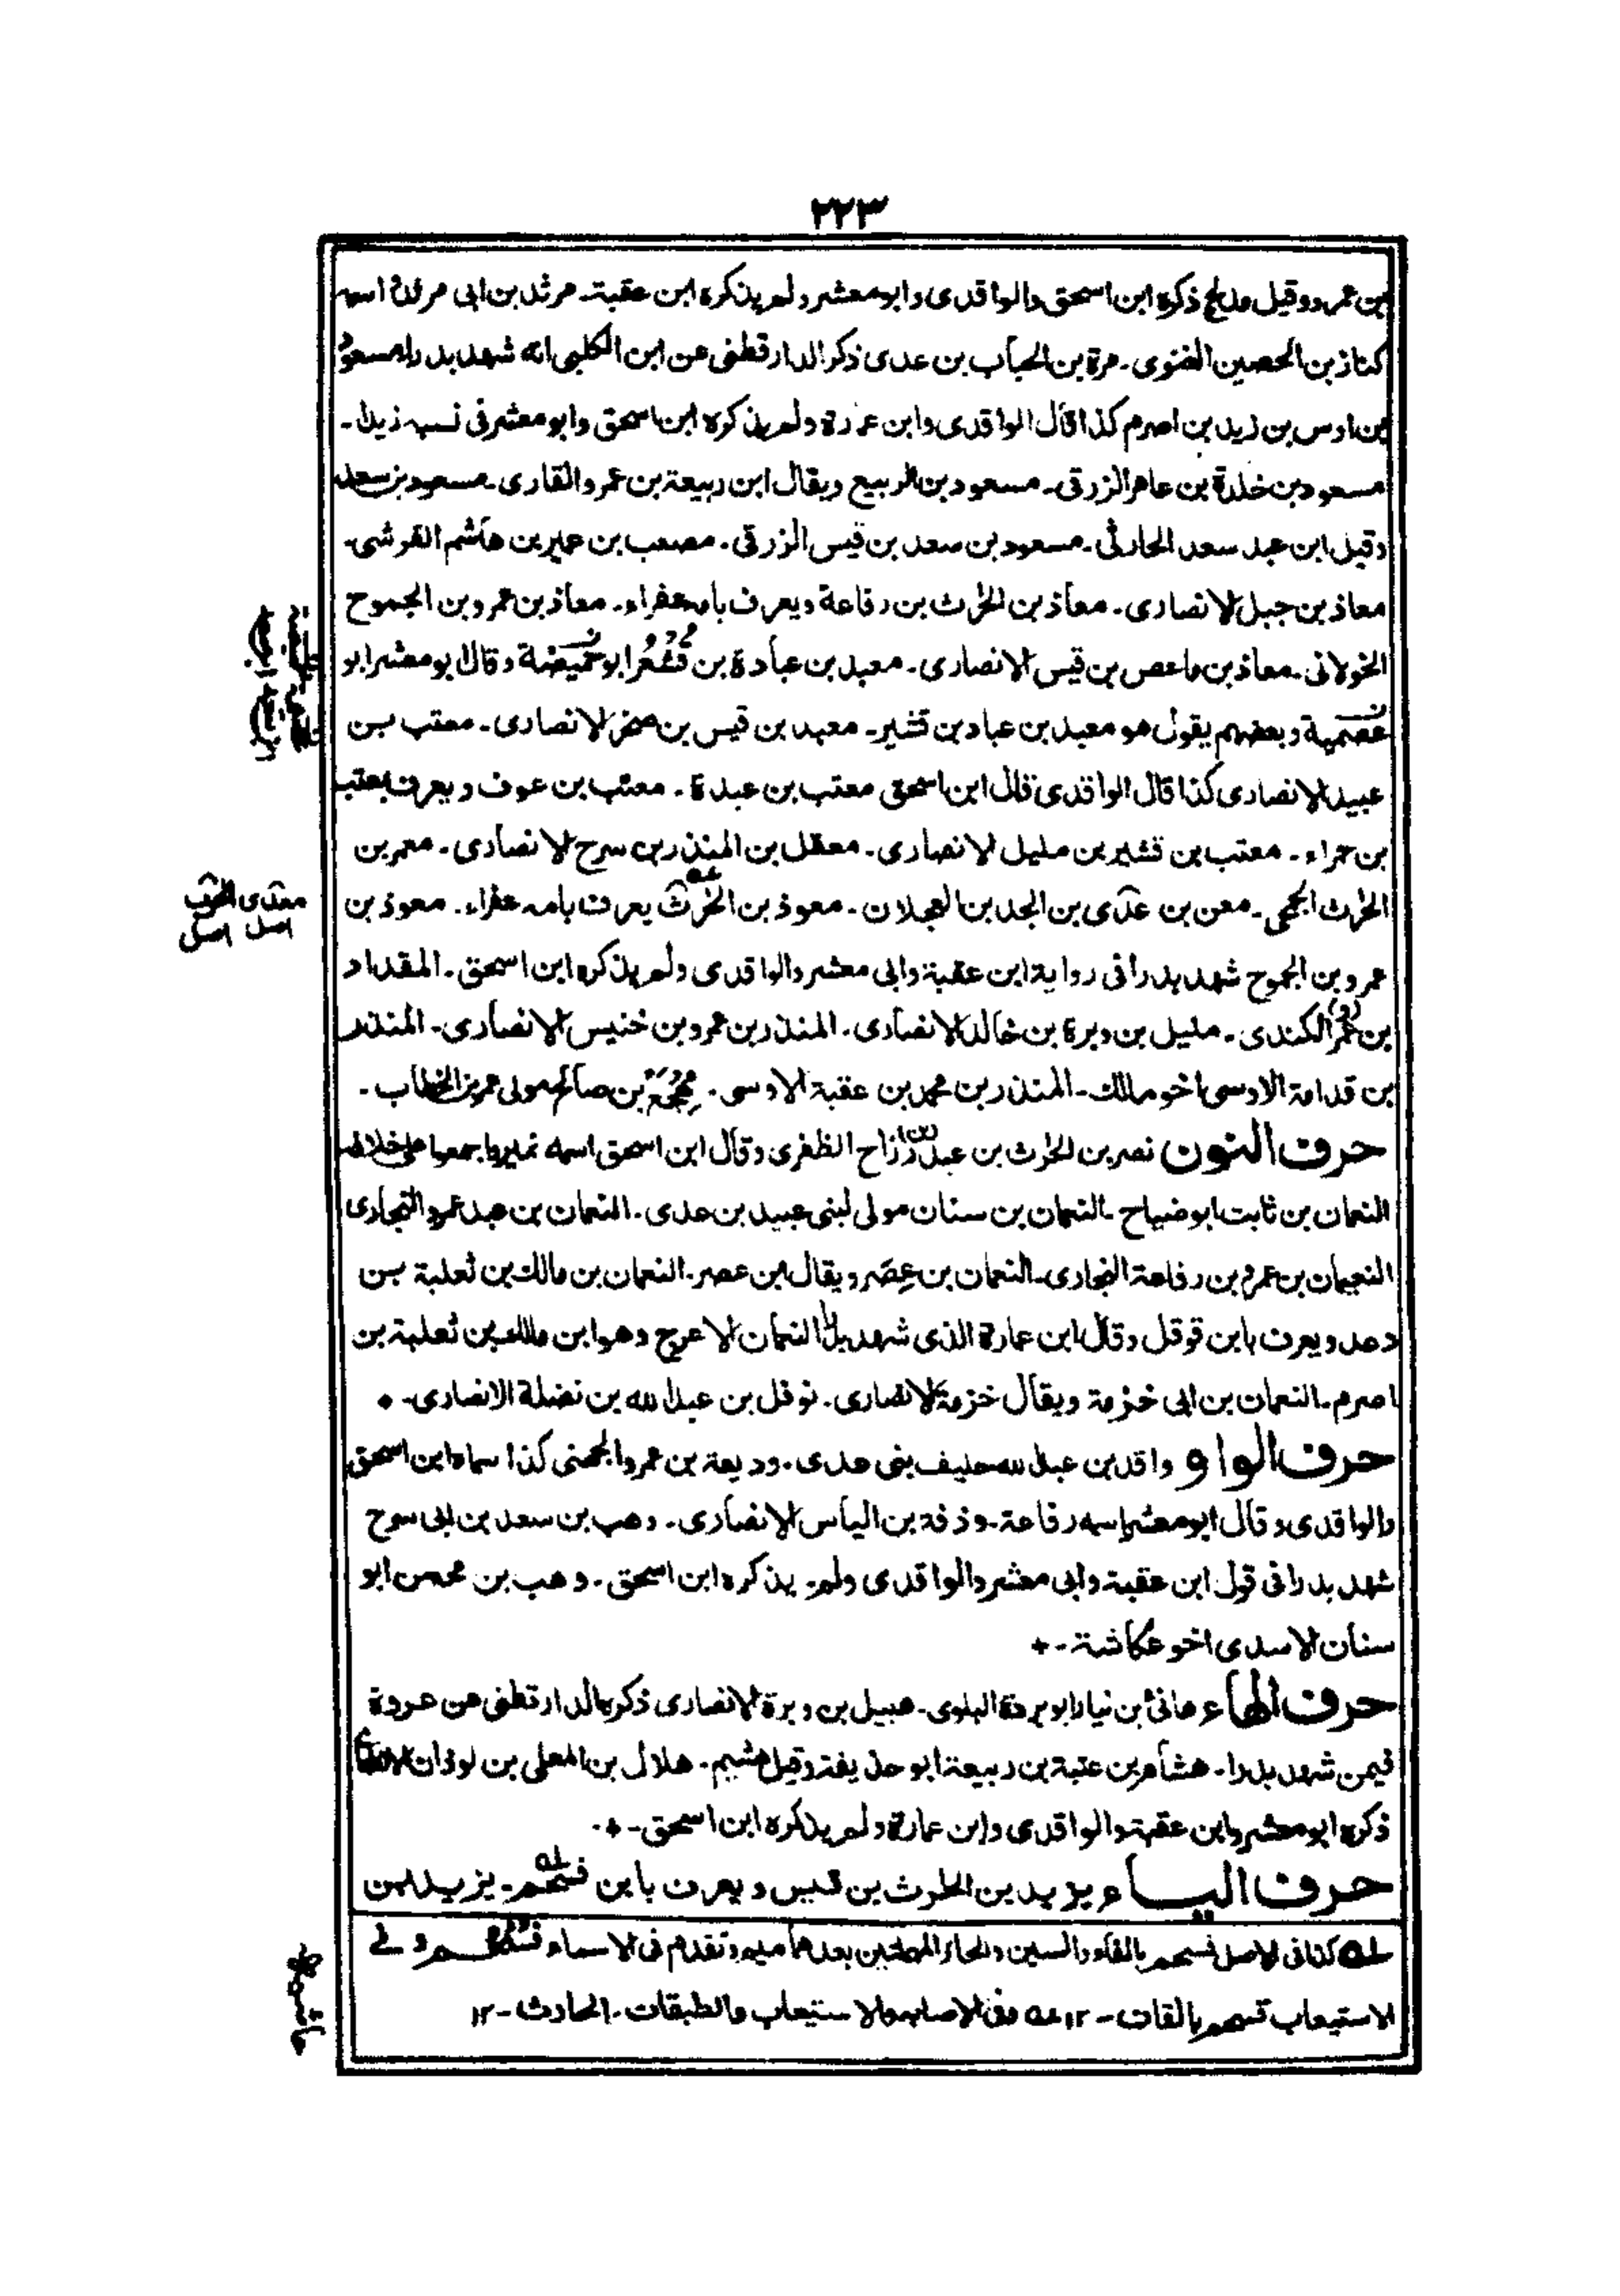 ٢٢٣
بن عمرو وقيل مدلج ذكره ابن اسحق والواقدى وابومعشر ولم يذكره ابن عقبة۔ مرثد بن ابى مرثد اسمه
كناز بن الحصين الغنوى۔ مرة بن الحباب بن عدى ذكر الدارقطنى عن ابن الكلبى انه شهد بدرا۔ مسعود
بن اوس بن زيد بن اصرم كذا قال الواقدى وابن عمارة ولم يذكره ابن اسحق وابو معشر فى نسبه زيدا۔
مسعود بن خلدة بن عامر الزرقى۔ مسعود بن الربيع ويقال ابن ربيعة بن عمرو القارى۔ مسعود بن سعد
وقيل ابن عبد سعد الحارثى۔ مسعود بن سعد بن قيس الزرقى۔ مصعب بن عمير بن هاشم القرشى۔
معاذ بن جبل الانصارى۔ معاذ بن الحرث بن رفاعة ويعرف بامه عفراء۔ معاذ بن عمرو بن الجموح
الخولانى۔ معاذ بن ماعص بن قيس الانصارى۔ معبد بن عبادة بن قشعر ابو خميضة وقال ابو معشر ابو
عصمية وبعضهم يقول هو معبد بن عباد بن قشير۔ معبد بن قيس بن صخر الانصارى۔ معتب بن
عبيد الانصارى كذا قال الواقدى قال ابن اسحق معتب بن عبدة۔ معتب بن عوف ويعرف بمعتب
بن حمراء۔ معتب بن قشير بن مليل الانصارى۔ معقل بن المنذر بن سرح الانصارى۔ معمر بن
الحرث الجمحى۔ معن بن عدى بن الجد بن العجلان۔ معوذ بن الحرث يعرف بامه عفراء۔ معوذ بن
عمرو بن الجموح شهد بدرا فى رواية ابن عقبة وابى معشر والواقدى ولم يذكره ابن اسحق۔ المقداد
بن عمر(و) الكندى۔ مليل بن وبرة بن خالد الانصارى۔ المنذر بن عمرو بن خنيس الانصارى۔ المنذر
بن قدامة الاوسى اخو مالك۔ المنذر بن محمد بن عقبة الاوسى۔ مهجع بن صالح مولى عمر بن الخطاب۔
حرف النون نصر بن الحرث بن عبد (بن) رزاح الظفرى وقال ابن اسحق اسمه نمير واجمعوا على خلافه
النعمان بن ثابت ابو ضياح۔ النعمان بن سنان مولى لبنى عبيد بن عدى۔ النعمان بن عبد عمرو النجارى
النعيمان بن عمرو بن رفاعة النجارى۔ النعمان بن عصر ويقال ابن عصر۔ النعمان بن مالك بن ثعلبة بن
دعد ويعرف بابن قوقل وقال ابن عمارة الذى شهد بدرا النعمان الاعرج وهو ابن مالك بن ثعلبة بن
اصرم۔ النعمان بن ابى خزمة ويقال خزمة الانصارى۔ نوفل بن عبد الله بن نضلة الانصارى۔
حرف الواو واقد بن عبد الله حليف بنى عدى۔ وديعة بن عمرو الجهنى كذا سماه ابن اسحق
والواقدى وقال ابو معشر اسمه رفاعة۔ وذفة بن الياس الانصارى۔ وهب بن سعد بن ابى سرح
شهد بدرا فى قول ابن عقبة وابى معشر والواقدى ولم يذكره ابن اسحق۔ وهب بن محصن ابو
سنان الاسدى اخو عكاشة۔
حرف الهاء هانئ بن نيار ابو بردة البلوى۔ هبيل بن وبرة الانصارى ذكره الدارقطنى عن عروة
فيمن شهد بدرا۔ هشام بن عتبة بن ربيعة ابو حذيفة وقيل هشيم۔ هلال بن المعلى بن لوذان الانصارى
ذكره ابو معشر وابن عقبة والواقدى وابن عمارة ولم يذكره ابن اسحق۔
حرف الياء يزيد بن الحرث بن قيس ويعرف بابن فسحم۔ يزيد بن
له كذا فى الاصل فسحم بالفاء والسين والحاء المهملتين بعدهما ميم وتقدم فى الاسماء وفى
الاستيعاب قسحم بالقاف۔ ١٢ عه وفى الاصابة والاستيعاب والطبقات۔ الحارث۔ ١٢